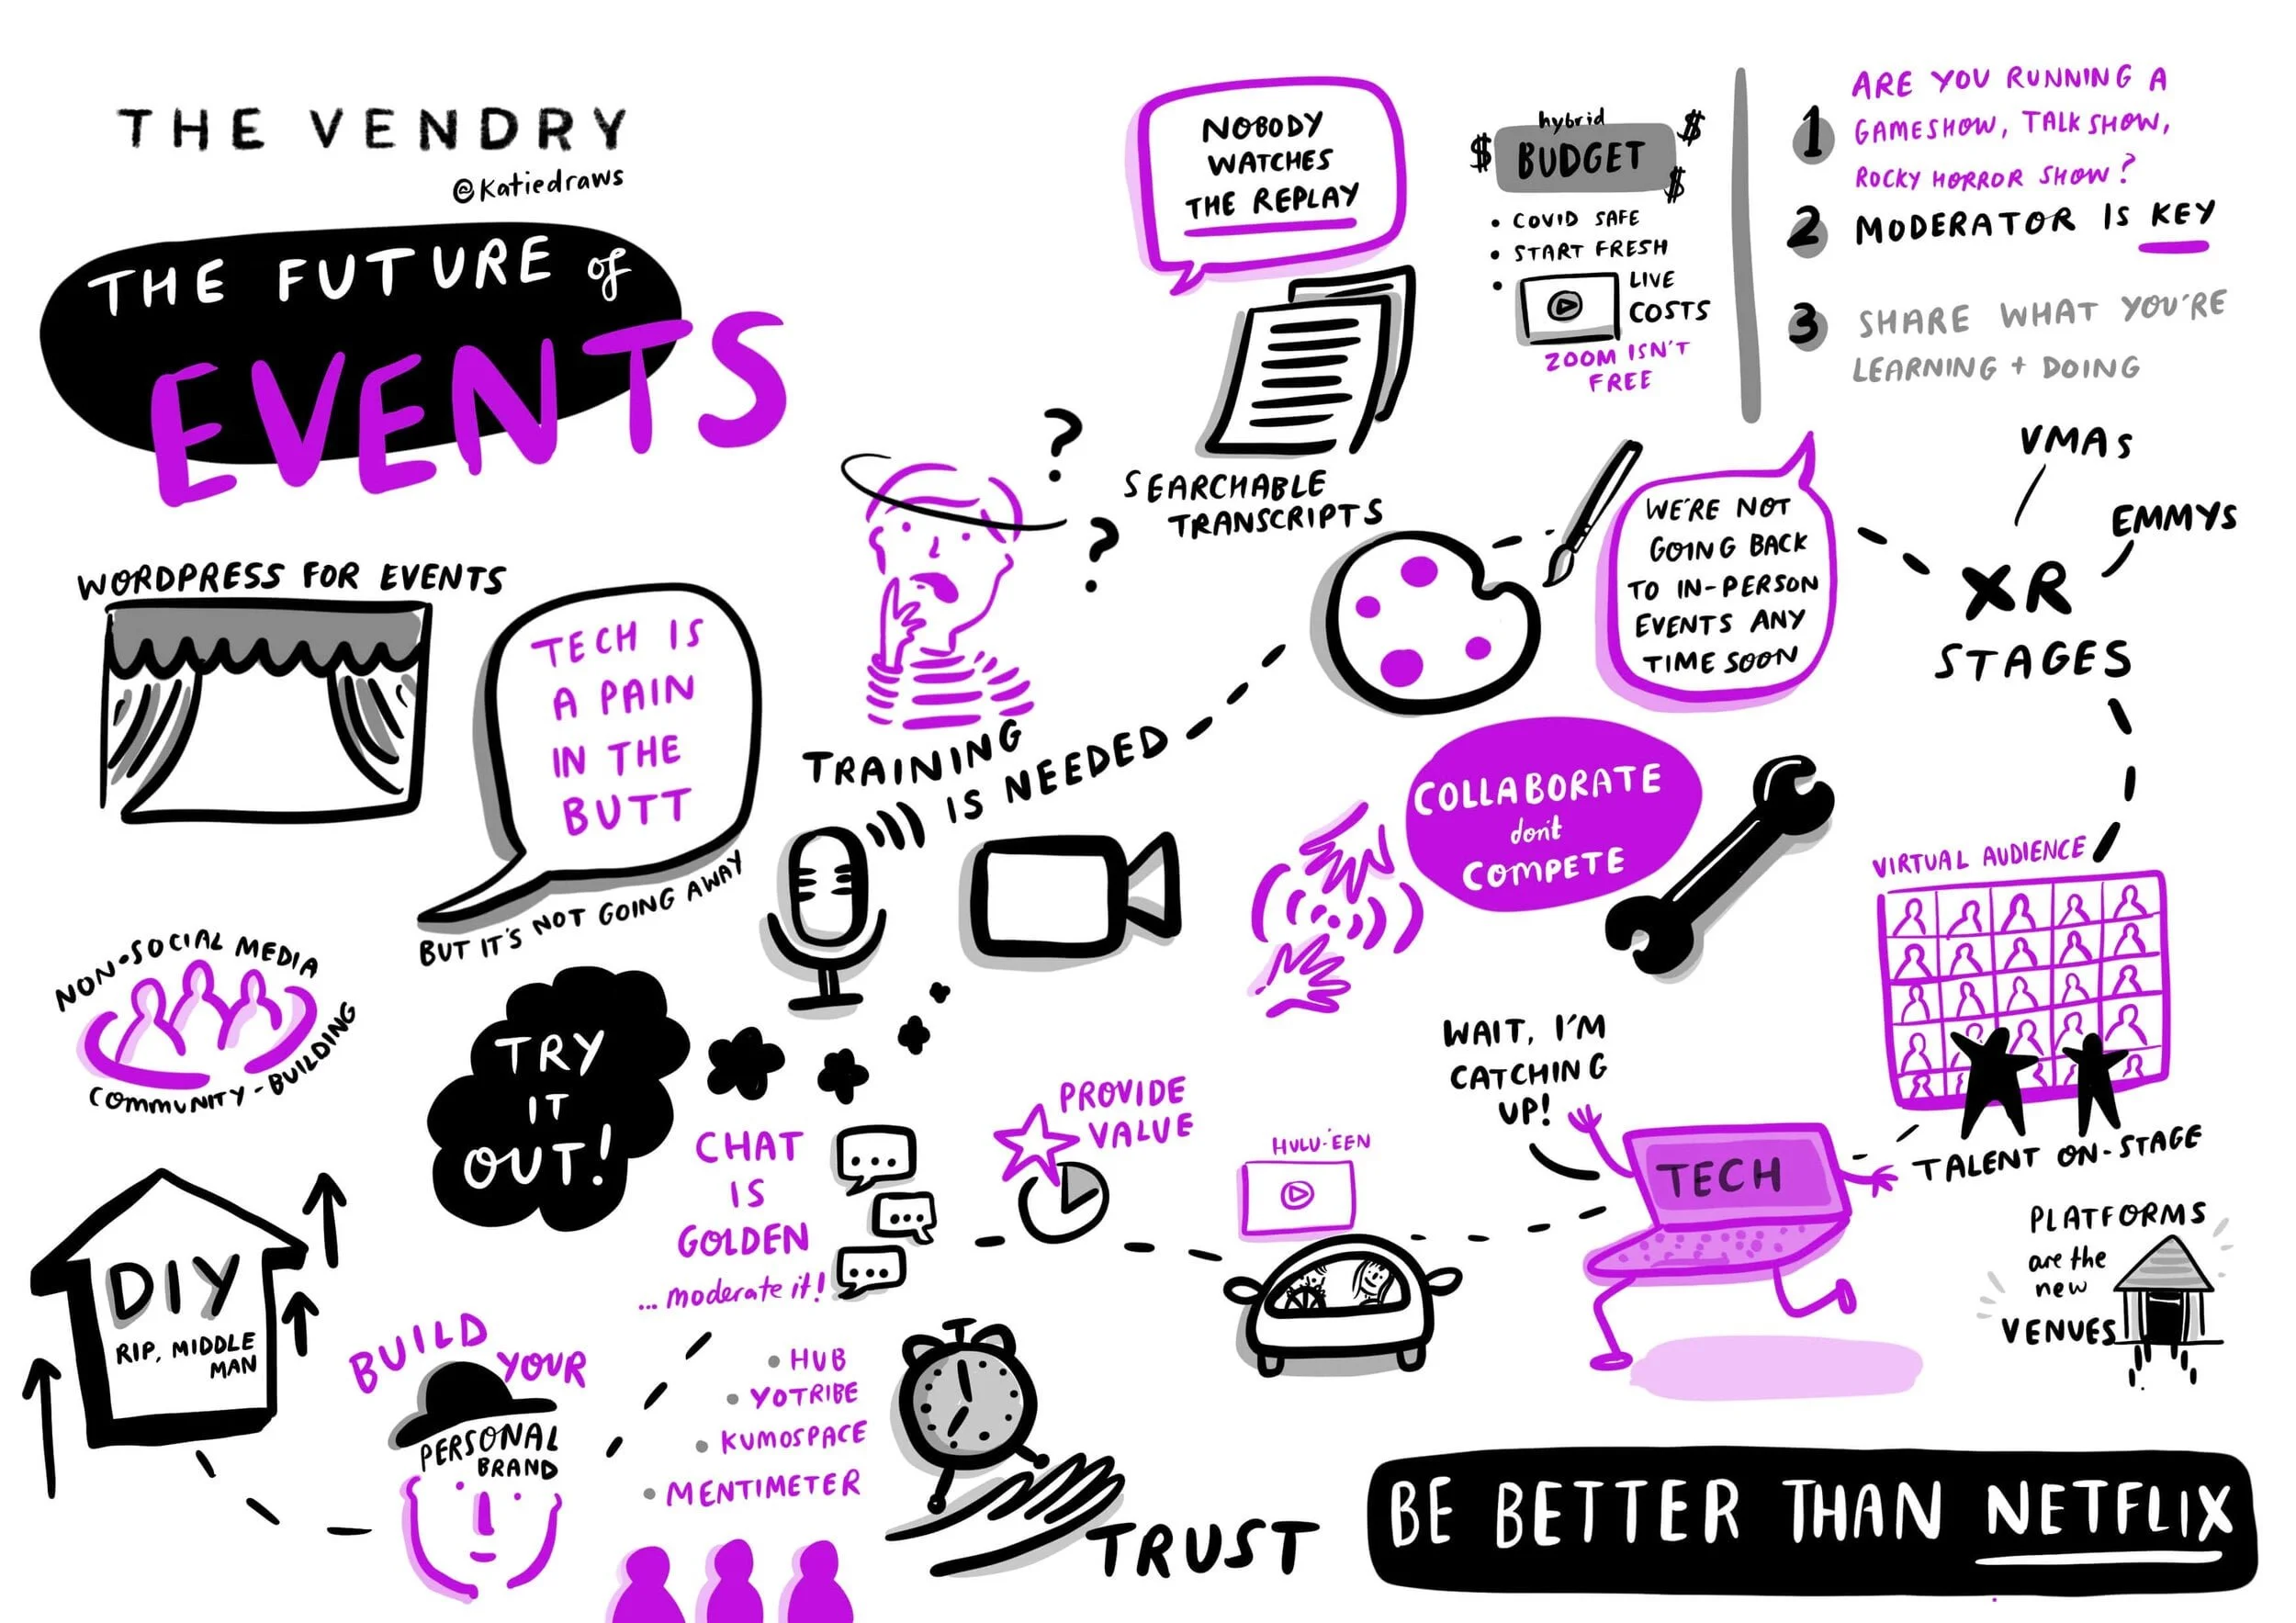 THE VENDRY
@Katiedraws
THE FUTURE of
EVENTS
NOBODY
WATCHES
THE REPLAY
SEARCHABLE
TRANSCRIPTS
hybrid
BUDGET
$
$
$
• COVID SAFE
• START FRESH
• LIVE
COSTS
ZOOM ISN'T
FREE
1 ARE YOU RUNNING A
GAMESHOW, TALK SHOW,
ROCKY HORROR SHOW?
2 MODERATOR IS KEY
3 SHARE WHAT YOU'RE
LEARNING + DOING
WORDPRESS FOR EVENTS
TECH IS
A PAIN
IN THE
BUTT
BUT IT'S NOT GOING AWAY
?
?
TRAINING
IS NEEDED
WE'RE NOT
GOING BACK
TO IN-PERSON
EVENTS ANY
TIME SOON
VMAs
EMMYS
XR
STAGES
COLLABORATE
don't
COMPETE
VIRTUAL AUDIENCE
TALENT ON-STAGE
NON-SOCIAL MEDIA
COMMUNITY-BUILDING
TRY
IT
OUT!
CHAT
IS
GOLDEN
... moderate it!
PROVIDE
VALUE
HULU-'EEN
WAIT, I'M
CATCHING
UP!
TECH
PLATFORMS
are the
new
VENUES
DIY
RIP, MIDDLE
MAN
BUILD
YOUR
PERSONAL
BRAND
• HUB
• YOTRIBE
• KUMOSPACE
• MENTIMETER
TRUST
BE BETTER THAN NETFLIX